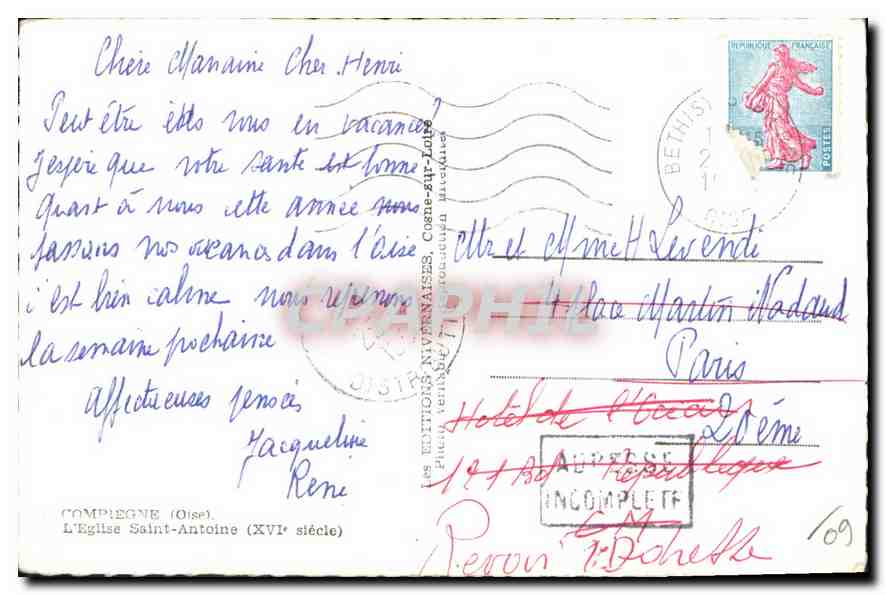 Chère Manaine Cher Henri
Peut être êtes vous en vacances?
J'espère que votre santé est bonne
Quant à nous cette année nous
passons nos vacances dans l'Oise
c'est bien calme nous reprenons
la semaine prochaine
Affectueuses pensées
Jacqueline
René
COMPIEGNE (Oise).
L'Eglise Saint-Antoine (XVIe siècle)
Les EDITIONS NIVERNAISES, Cosne-sur-Loire
Photo véritable reproduction interdite
REPUBLIQUE FRANÇAISE
POSTES
BETHISY
OISE
DISTR
CPAPHIL
Mr et Mme H Levendi
Place Martin Nadaud
Paris
20ème
Hôtel de
Bd République
ADRESSE
INCOMPLETE
Revoir l'Adresse
/09